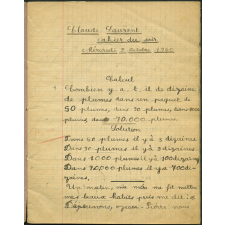 Claude Laurent
cahier du soir
Mercredi 2 Octobre 1940
Calcul
Combien y a-t-il de dizaine
de plumes dans un paquet de
50 plumes, dans 30 plumes, dans 1000
plumes dans 70,000 plumes.
Solution
Dans 50 plumes il y a 5 dizaines
Dans 30 plumes il y a 3 dizaines
Dans 1000 plumes il y a 100 dizaines
Dans 70,000 plumes il y a 7000
dizaines,
Un matin, ma mère me fit mettre
mes beaux habits puis me dit